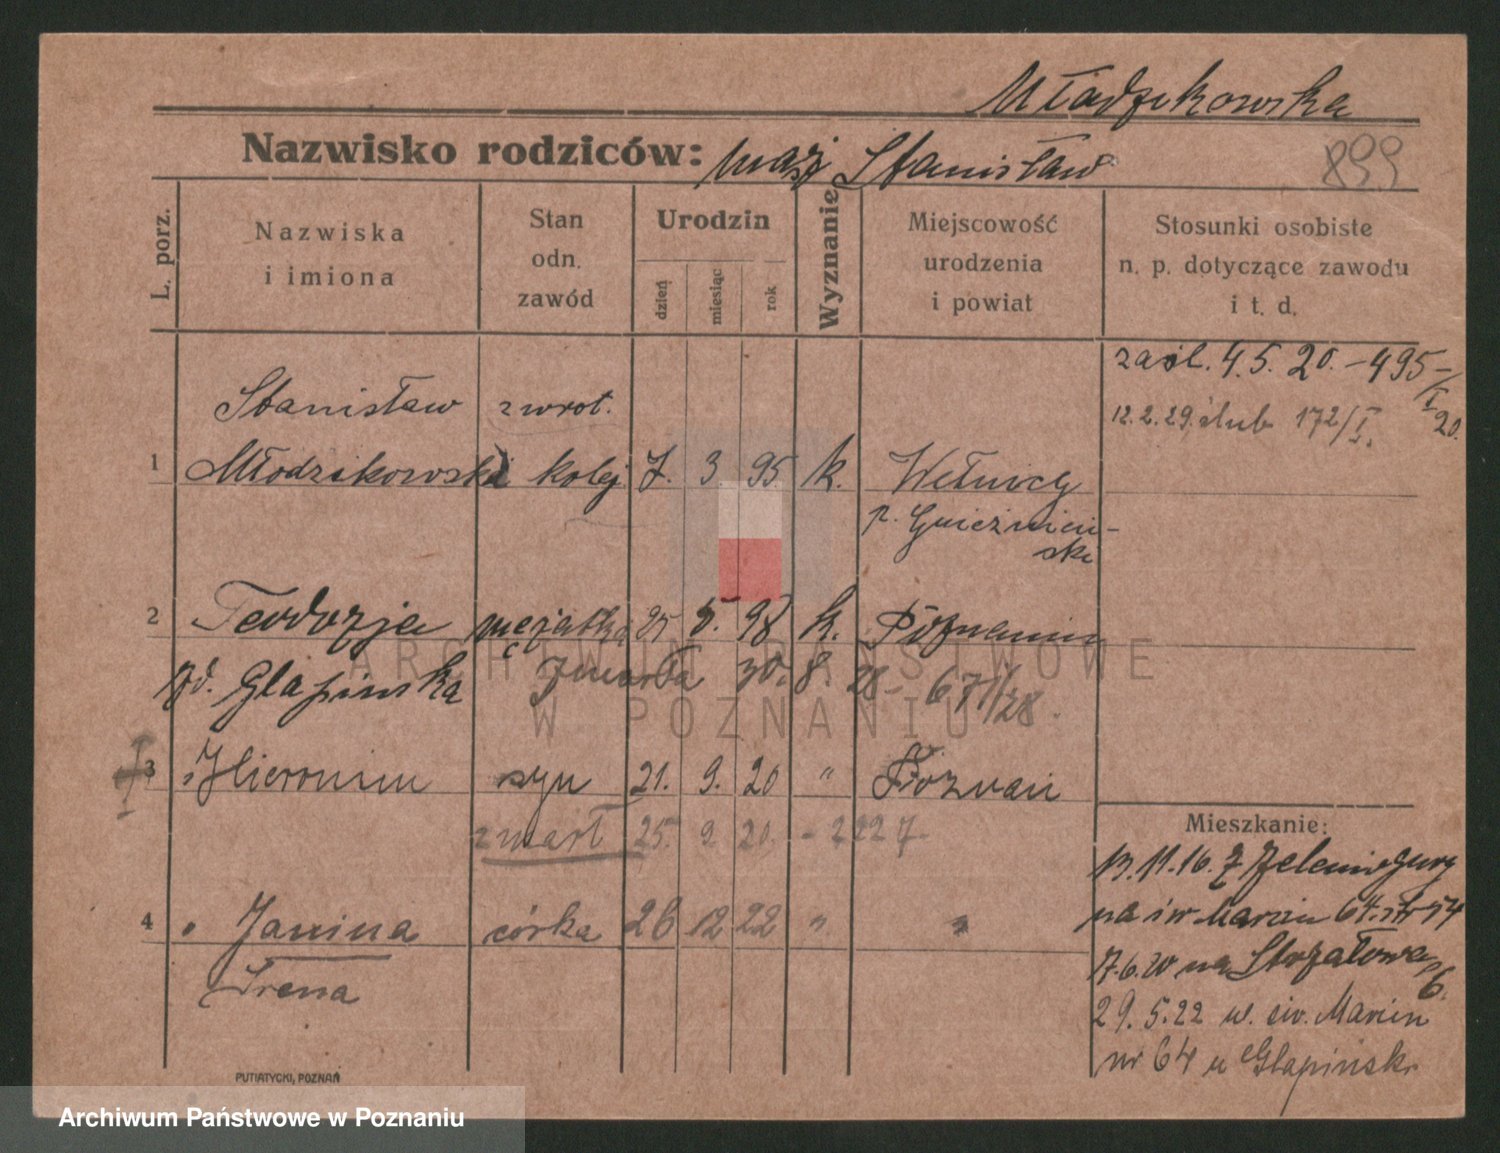 Młodzikowska
Nazwisko rodziców: mąż Stanisław
899
L. porz.
Nazwiska
i imiona
Stan
odn.
zawód
Urodzin
dzień
miesiąc
rok
Wyznanie
Miejscowość
urodzenia
i powiat
Stosunki osobiste
n. p. dotyczące zawodu
i t. d.
zaśl. 4.5.20. - 495 -/I 20.
12.2.29. ślub 172/I.
Stanisław zwrot.
1 Młodzikowski kolej 7. 3 95 k. Wełnicy
p. Gnieźnień-
ski
2 Teodozja mężatka 25 5. 98 k. Poznaniu
zd. Glapińska zmarła 30. 8. 28 - 671/28.
3 Hieronim syn 21. 9. 20 " Poznań
zmarł 25. 9. 20. - 2227 -
4 " Janina córka 26 12 22 " "
Irena
Mieszkanie:
13.11.16. z Zielenie
na św Marcin 64.
7.6.20 na Strzałowa 6.
29.5.22 w. św. Marcin
nr 64 u Glapińsk.
PUTIATYCKI, POZNAŃ
ARCHIWUM PAŃSTWOWE
W POZNANIU
Archiwum Państwowe w Poznaniu